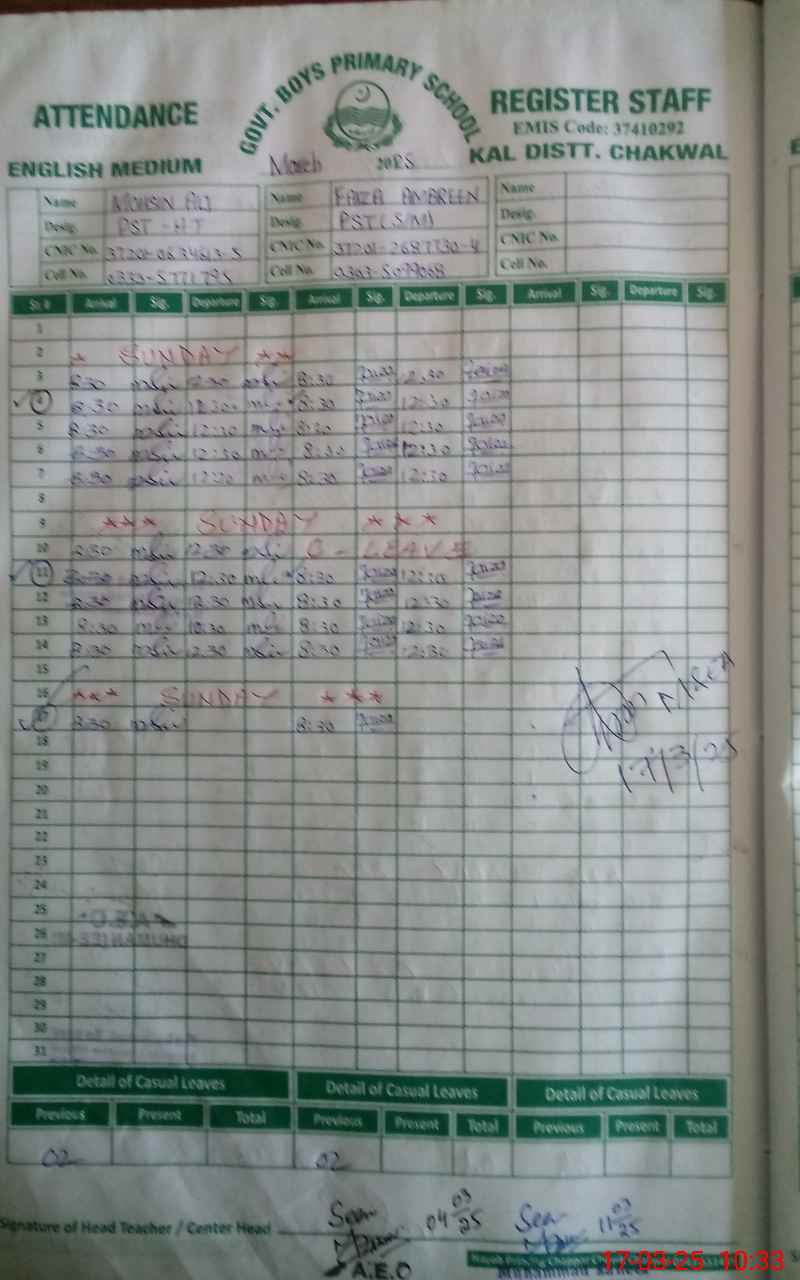 GOVT. BOYS PRIMARY SCHOOL
ATTENDANCE REGISTER STAFF
EMIS Code: 37410292
ENGLISH MEDIUM March 2025 KAL DISTT. CHAKWAL
Name MOHSIN ALI Name FAIZA AMBREEN Name
Desig. PST - HT Desig. PST (S/M) Desig.
CNIC No. 37201-0634613-5 CNIC No. 37201-2687730-4 CNIC No.
Cell No. 0333-5771795 Cell No. 0303-5099068 Cell No.
Sr. # Arrival Sig. Departure Sig. Arrival Sig. Departure Sig. Arrival Sig. Departure Sig.
1
2 * SUNDAY **
3 8:30 12:30 8:30 12:30
4 8:30 12:30 8:30 12:30
5 8:30 12:30 8:30 12:30
6 8:30 12:30 8:30 12:30
7 8:30 12:30 8:30 12:30
8
9 *** SUNDAY ***
10 8:30 12:30 C - LEAVE
11 8:30 12:30 8:30 12:30
12 8:30 12:30 8:30 12:30
13 8:30 12:30 8:30 12:30
14 8:30 12:30 8:30 12:30
15
16 *** SUNDAY ***
17 8:30 8:30
18
17/3/25
19
20
21
22
23
24
25
26
27
28
29
30
31
Detail of Casual Leaves Detail of Casual Leaves Detail of Casual Leaves
Previous Present Total Previous Present Total Previous Present Total
02 02
Signature of Head Teacher / Center Head
Seen 04/03/25 Seen 11/03/25
A.E.O
17-03-25 10:33